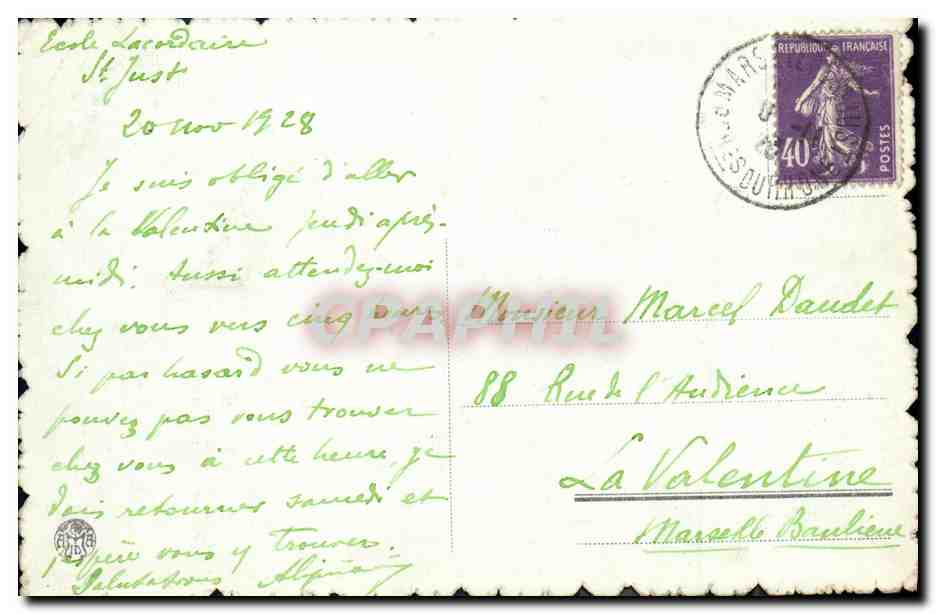 Ecole Lacordaire
St Just
20 nov 1928
Je suis obligé d'aller
à la Valentine jeudi après-
midi. Aussi attendez-moi
chez vous vers cinq
Si par hasard vous ne
pouvez pas vous trouver
chez vous à cette heure, je
dois retourner samedi et
j'espère vous y trouver.
Salutations
REPUBLIQUE FRANÇAISE
40
POSTES
CPAPHIL
Monsieur Marcel Daudet
88 Rue de l'Audience
La Valentine
Marseille Banlieue